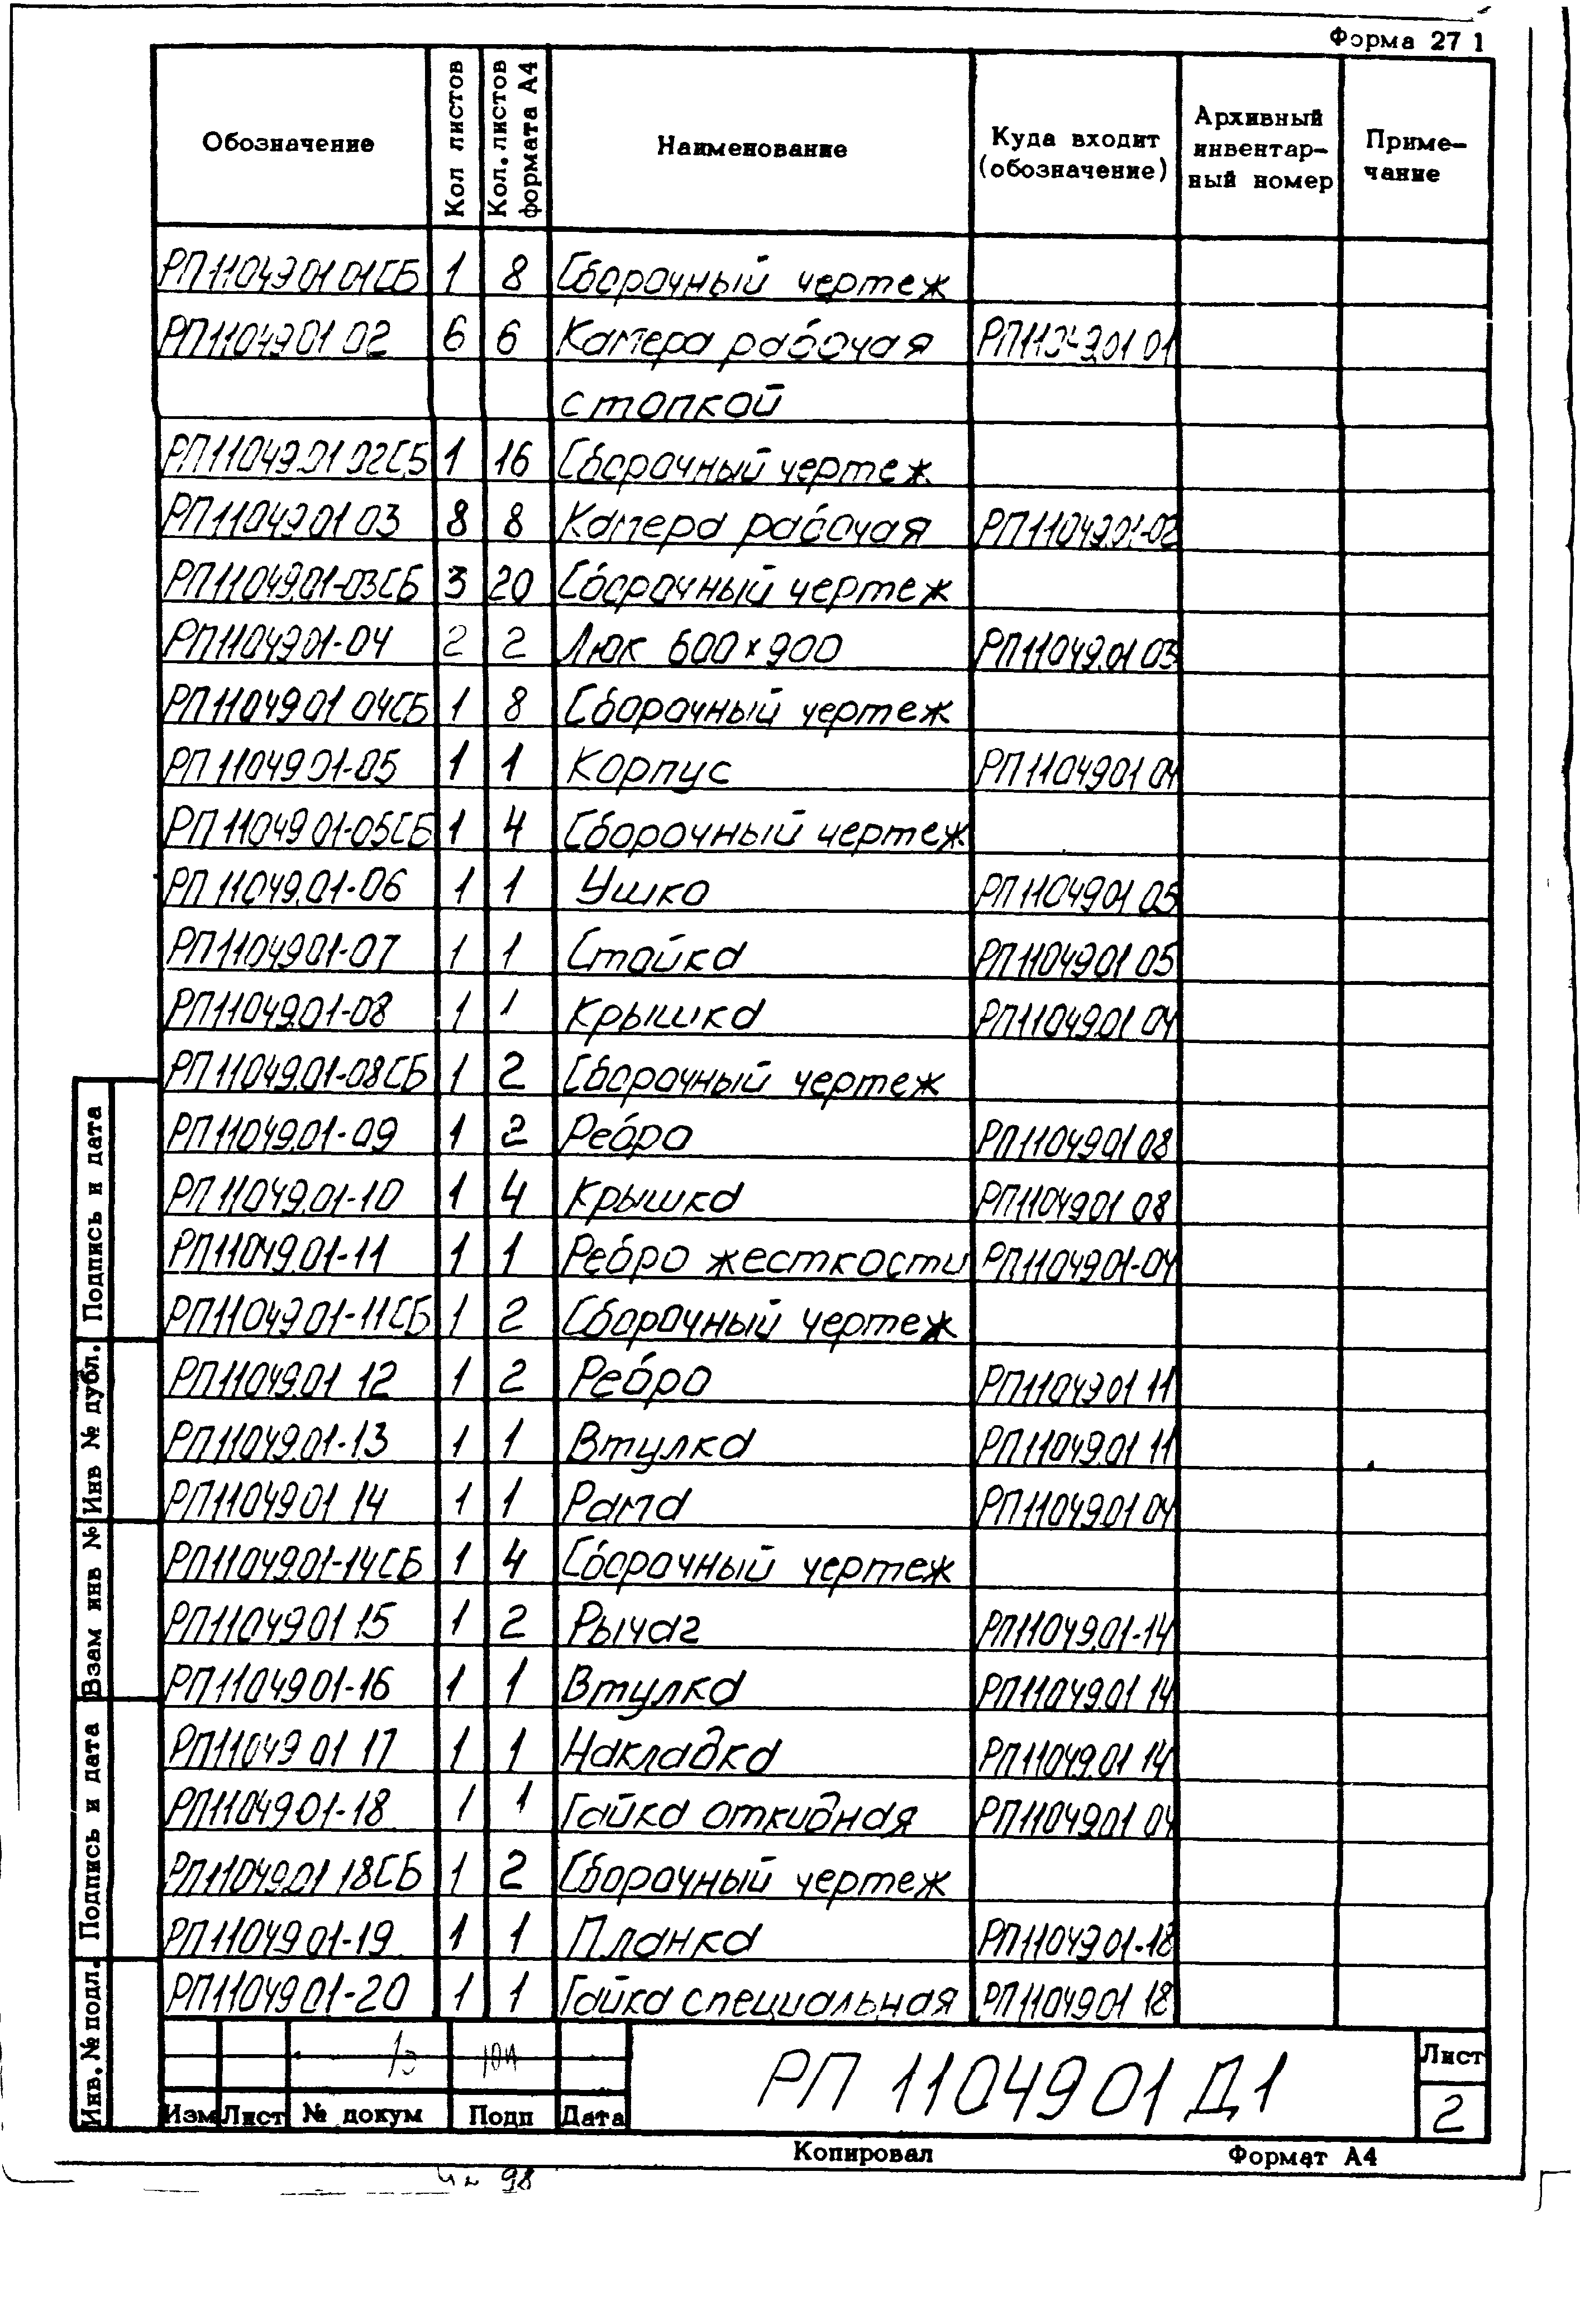 Форма 27 1
Обозначение Кол листов Кол. листов формата А4 Наименование Куда входит (обозначение) Архивный инвентар- ный номер Приме- чание
РП11049.01 01СБ 1 8 Сборочный чертеж
РП11049.01 02 6 6 Камера рабочая РП11049.01 01
с топкой
РП11049.01 02СБ 1 16 Сборочный чертеж
РП11049.01 03 8 8 Камера рабочая РП11049.01-02
РП11049.01-03СБ 3 20 Сборочный чертеж
РП11049.01-04 2 2 Люк 600×900 РП11049.01 03
РП11049.01 04СБ 1 8 Сборочный чертеж
РП11049.01-05 1 1 Корпус РП11049.01 04
РП11049.01-05СБ 1 4 Сборочный чертеж
РП11049.01-06 1 1 Ушко РП11049.01 05
РП11049.01-07 1 1 Стойка РП11049.01 05
РП11049.01-08 1 1 Крышка РП11049.01 04
РП11049.01-08СБ 1 2 Сборочный чертеж
РП11049.01-09 1 2 Ребро РП11049.01 08
РП11049.01-10 1 4 Крышка РП11049.01 08
РП11049.01-11 1 1 Ребро жесткости РП11049.01-04
РП11049.01-11СБ 1 2 Сборочный чертеж
РП11049.01 12 1 2 Ребро РП11049.01 11
РП11049.01-13 1 1 Втулка РП11049.01 11
РП11049.01 14 1 1 Рама РП11049.01 04
РП11049.01-14СБ 1 4 Сборочный чертеж
РП11049.01 15 1 2 Рычаг РП11049.01-14
РП11049.01-16 1 1 Втулка РП11049.01 14
РП11049 01 17 1 1 Накладка РП11049.01 14
РП11049.01-18 1 1 Гайка откидная РП11049.01 04
РП11049.01 18СБ 1 2 Сборочный чертеж
РП11049 01-19 1 1 Планка РП11049.01-18
РП11049.01-20 1 1 Гайка специальная РП11049.01 18
Подпись и дата
Инв № дубл.
Взам инв №
Подпись и дата
Инв. № подл.
Изм Лист № докум Подп Дата
РП 11049 01 Д1
Лист
2
Копировал Формат А4
98